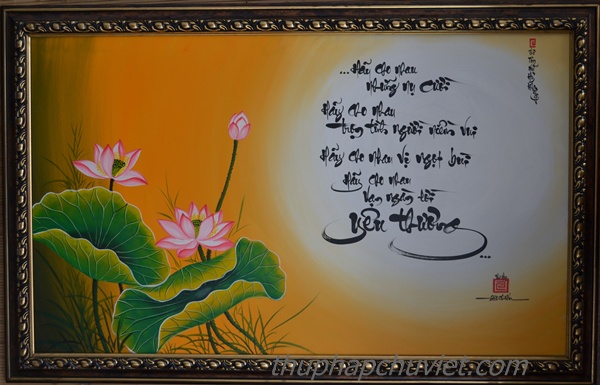 ...Hãy cho nhau
những nụ cười
Hãy cho nhau
trọn tình người niềm vui
Hãy cho nhau vị ngọt bùi
Hãy cho nhau
vạn ngàn lời
yêu thương
...
thuphapchuviet.com